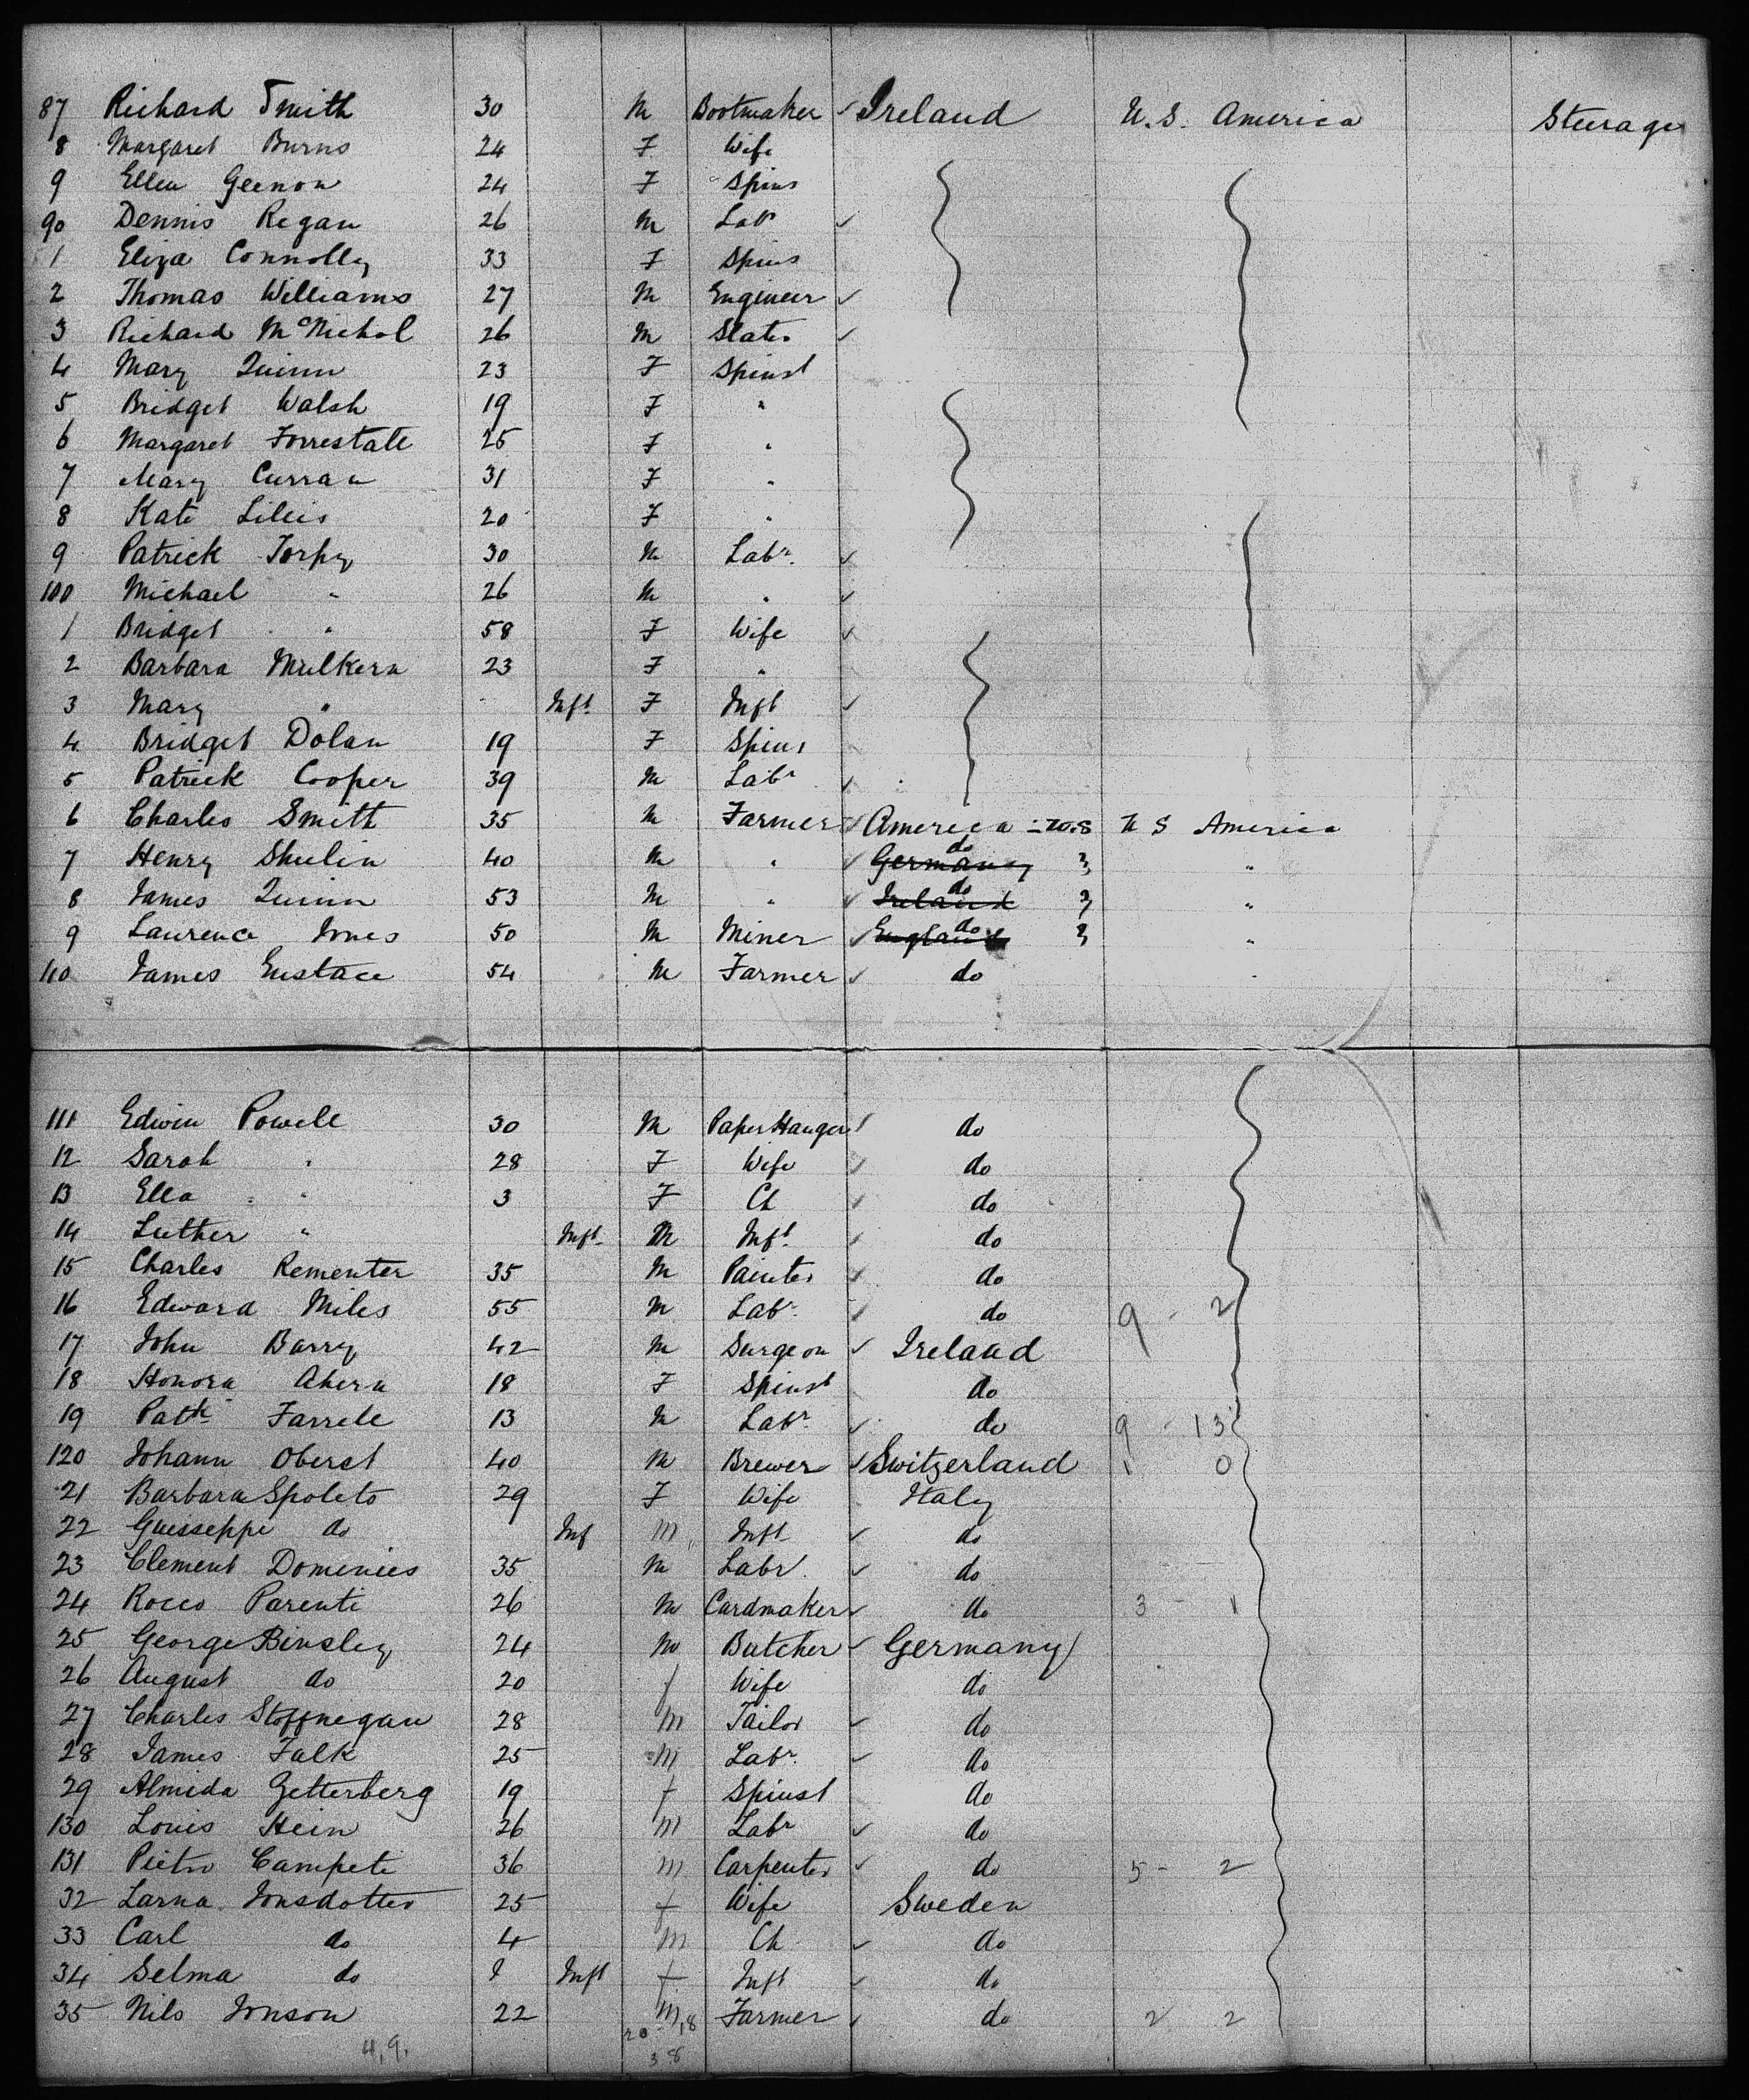 87 Richard Smith 30 M Bootmaker ✓ Ireland U.S. America Steerage
8 Margaret Burns 24 F Wife
9 Ellen Geenon 24 F Spins
90 Dennis Regan 26 M Labr ✓
1 Eliza Connolly 33 F Spins
2 Thomas Williams 27 M Engineer ✓
3 Richard McNichol 26 M Slater ✓
4 Mary Quinn 23 F Spinst
5 Bridget Walsh 19 F "
6 Margaret Forrestall 25 F "
7 Mary Curran 31 F "
8 Kate Lillis 20 F "
9 Patrick Torpy 30 M Labr. ✓
100 Michael " 26 M " ✓
1 Bridget " 58 F Wife ✓
2 Barbara Mulkern 23 F "
3 Mary " Inft. F Inft ✓
4 Bridget Dolan 19 F Spins
5 Patrick Cooper 39 M Labr ✓
6 Charles Smith 35 M Farmer ✓ America U S America
7 Henry Shulin 40 M " ✓ Germany do "
8 James Quinn 53 M " ✓ Ireland do "
9 Laurence Jones 50 M Miner ✓ England do "
110 James Eustace 54 M Farmer ✓ do "
111 Edwin Powell 30 M Paper Hanger ✓ do
12 Sarah " 28 F Wife ✓ do
13 Ella " 3 F Ch ✓ do
14 Luther " Inft. M Inft. ✓ do
15 Charles Rementer 35 M Painter ✓ do
16 Edward Miles 55 M Labr. ✓ do 9 - 2
17 John Barry 42 M Surgeon ✓ Ireland
18 Honora Ahern 18 F Spinst do
19 Patk Farrell 13 M Labr. ✓ do 9 - 13
120 Johann Oberst 40 M Brewer ✓ Switzerland 1 0
21 Barbara Spoleto 29 F Wife Italy
22 Guisseppi do Inf M Inft ✓ do
23 Clement Domenices 35 M Labr. ✓ do
24 Rocco Parenti 26 M Cardmaker ✓ do 3 - 1
25 George Binsley 24 M Butcher ✓ Germany
26 August do 20 f Wife do
27 Charles Stoffnegan 28 M Tailor ✓ do
28 James Falk 25 M Labr. ✓ do
29 Almida Getterberg 19 f Spinst do
130 Louis Hein 26 M Labr ✓ do
131 Pietro Campeti 36 M Carpenter ✓ do 5 - 2
32 Larna Jonsdotter 25 f Wife Sweden
33 Carl do 4 M Ch ✓ do
34 Selma do Inft f Inft ✓ do
35 Nils Jonson 22 M Farmer ✓ do 2 2
4,9. 20 - 18
38